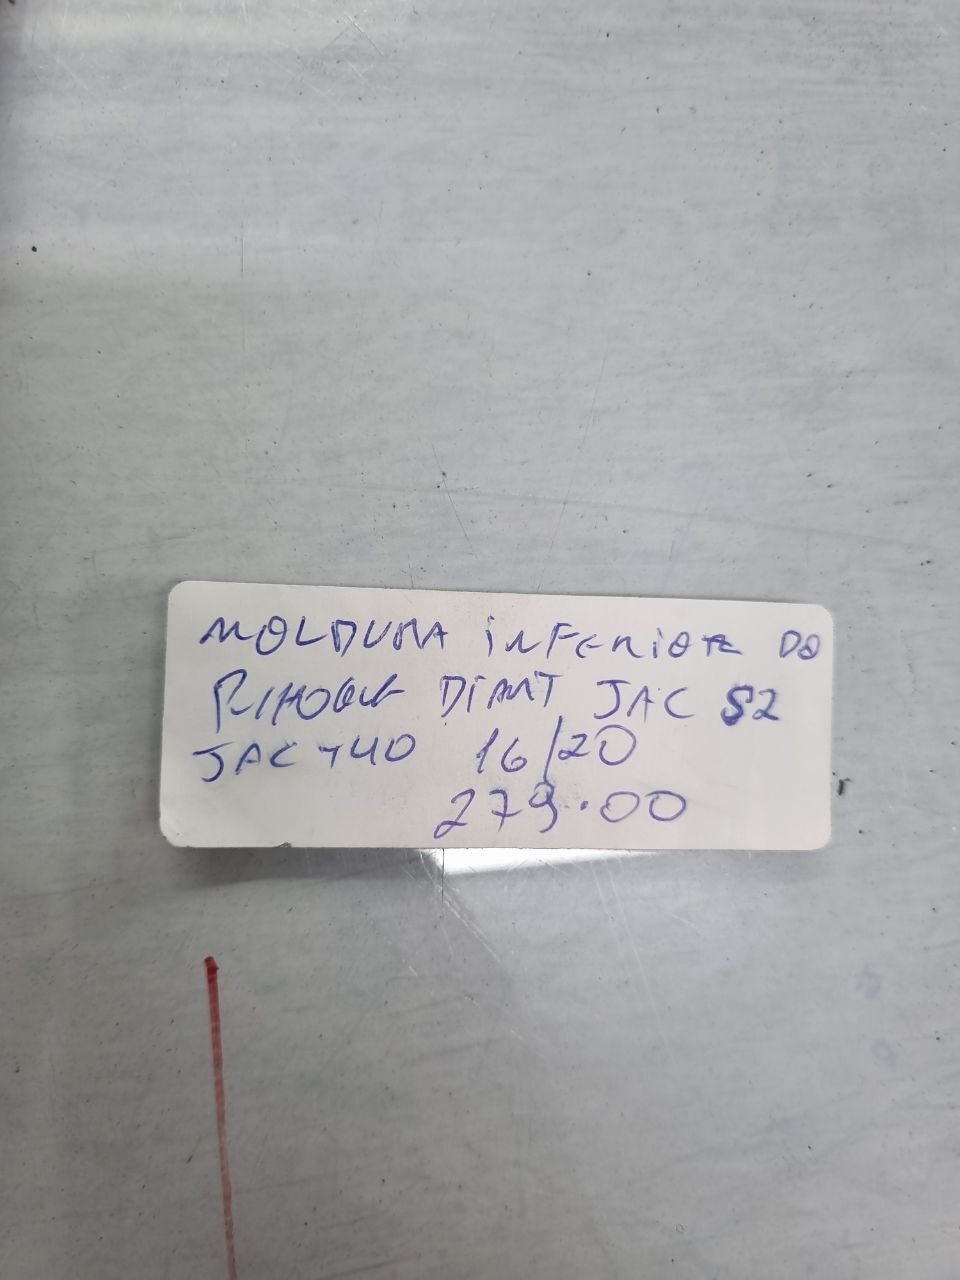 MOLDURA INFERIOR DO
DIANT JAC S2
JAC T40 16/20
279.00